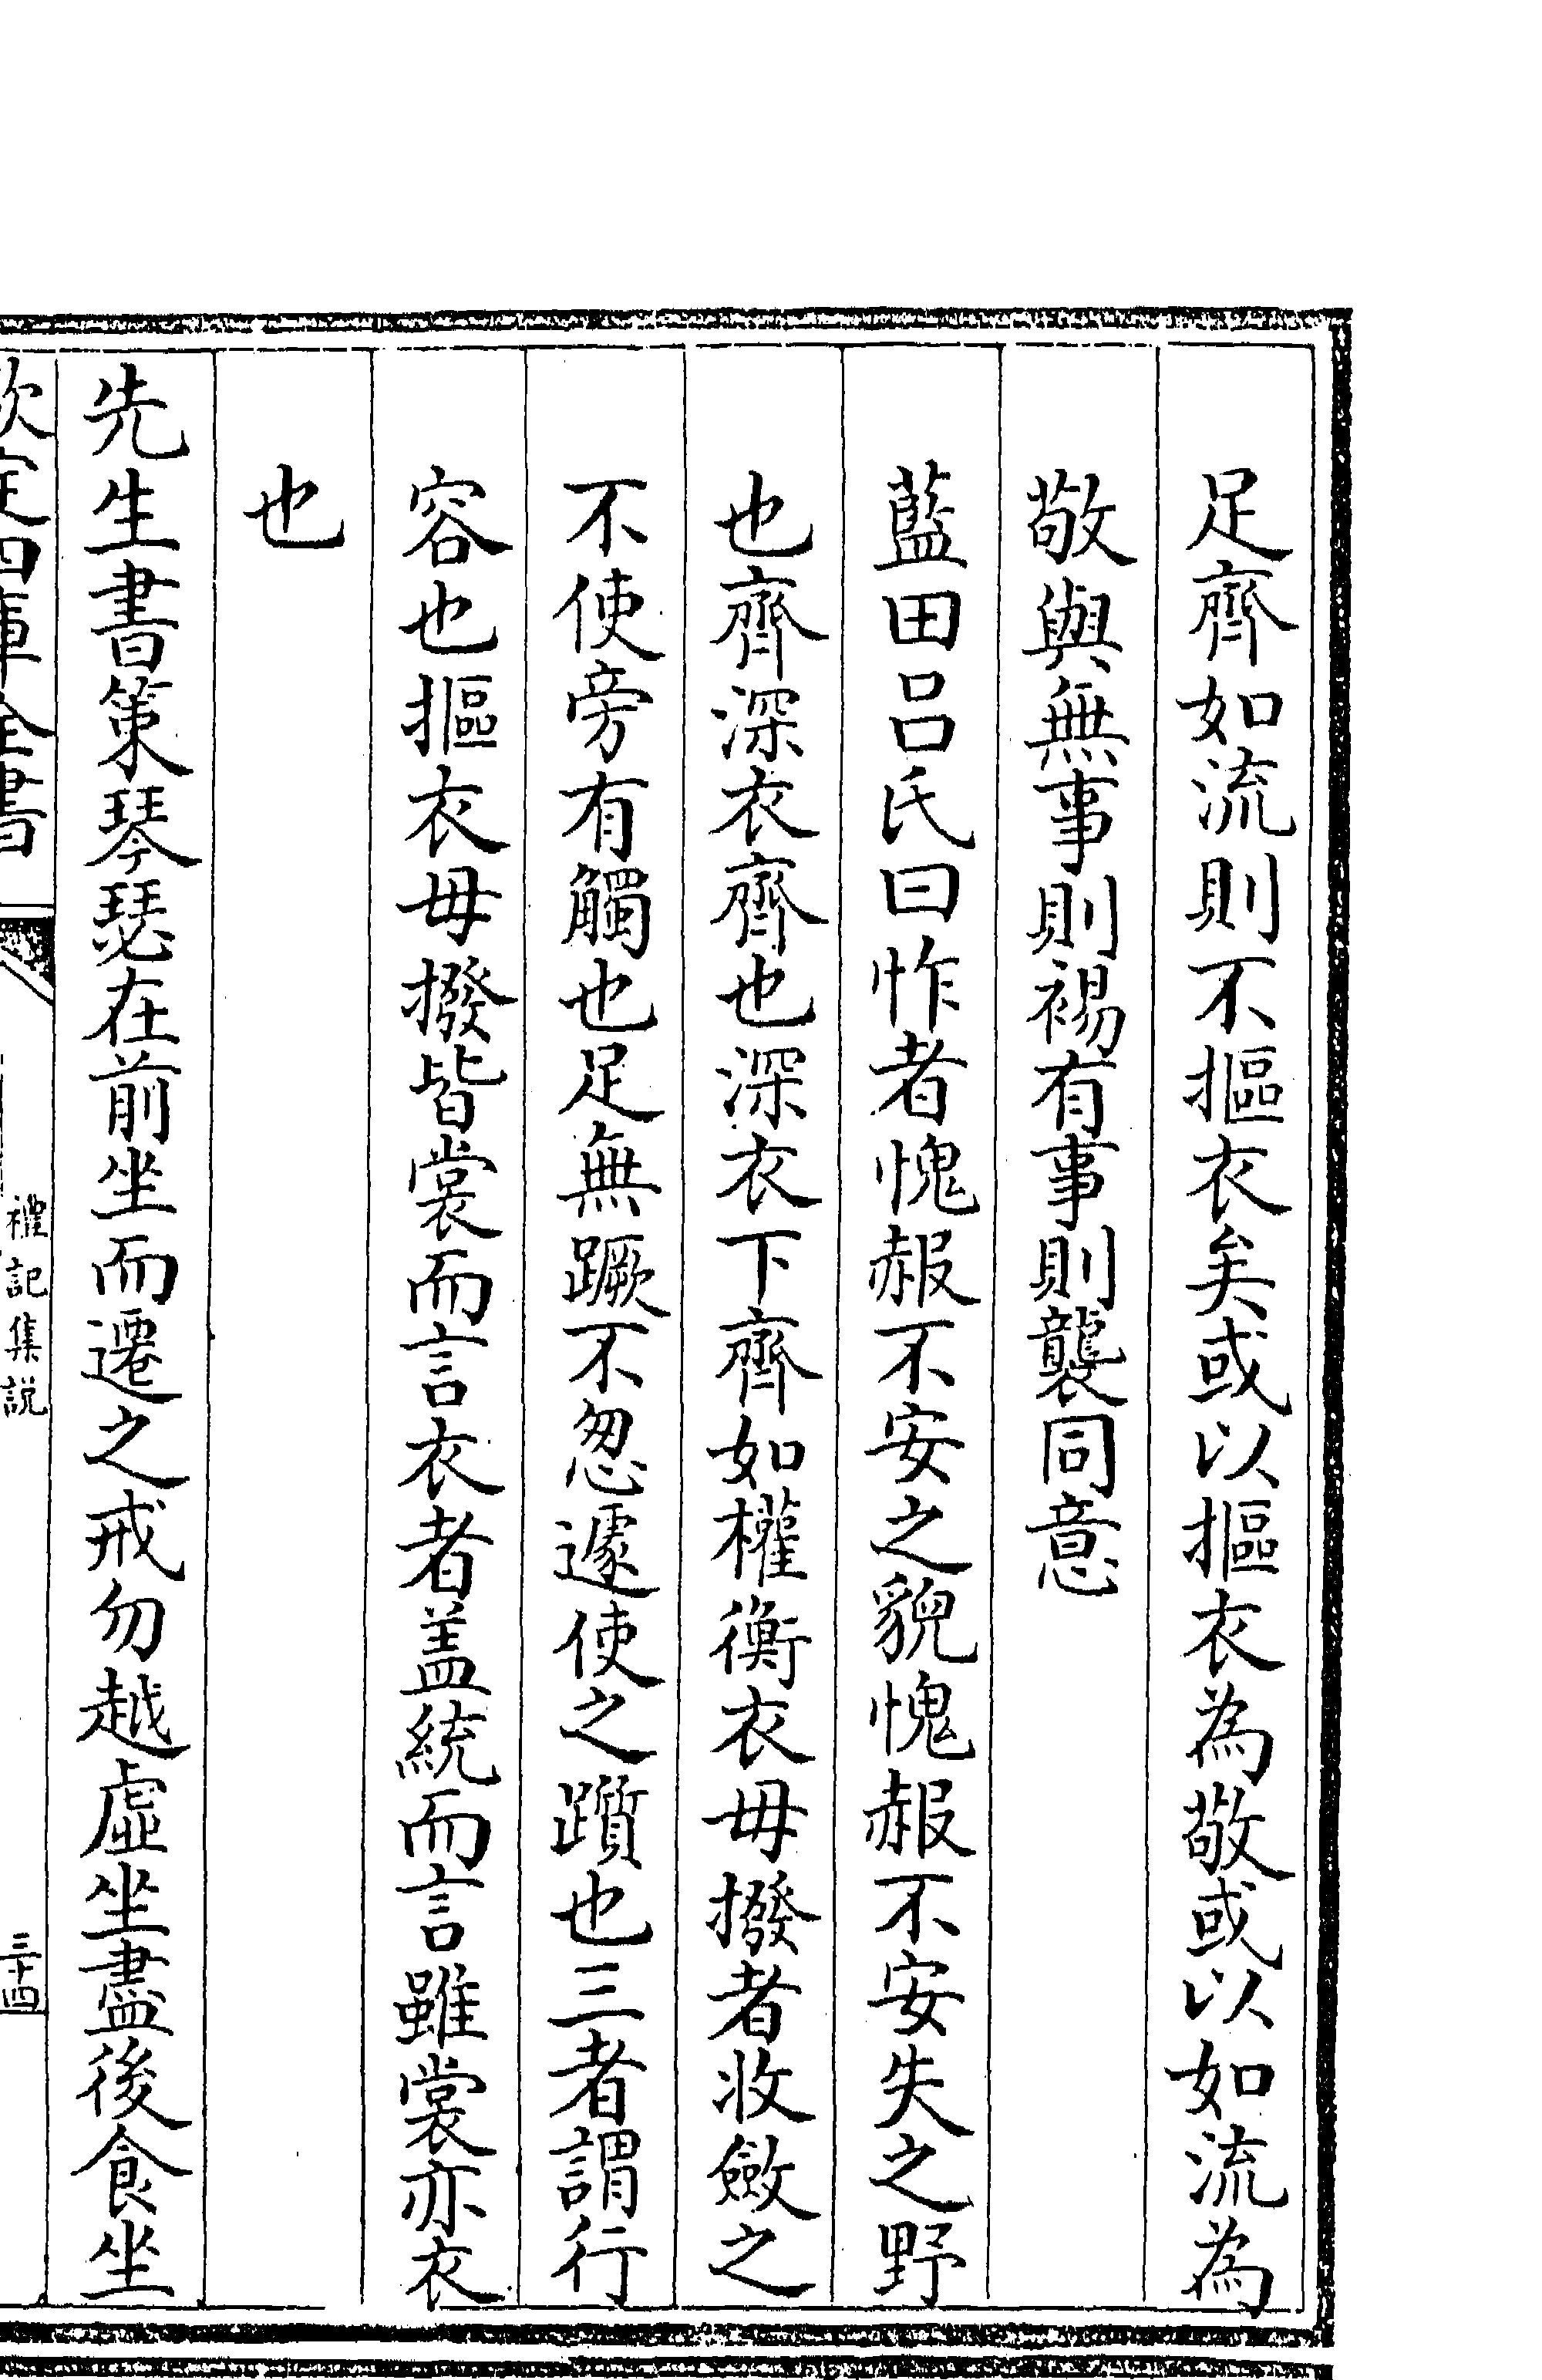 足齊如流則不摳衣矣或以摳衣為敬或以如流為
敬與無事則裼有事則襲同意
藍田呂氏曰怍者愧赧不安之貌愧赧不安失之野
也齊深衣齊也深衣下齊如權衡衣毋撥者收斂之
不使旁有觸也足無蹶不怱遽使之躓也三者謂行
容也摳衣毋撥皆裳而言衣者盖統而言雖裳亦衣
也
先生書策琴瑟在前坐而遷之戒勿越虛坐盡後食坐
欽定四庫全書
禮記集説
三十四